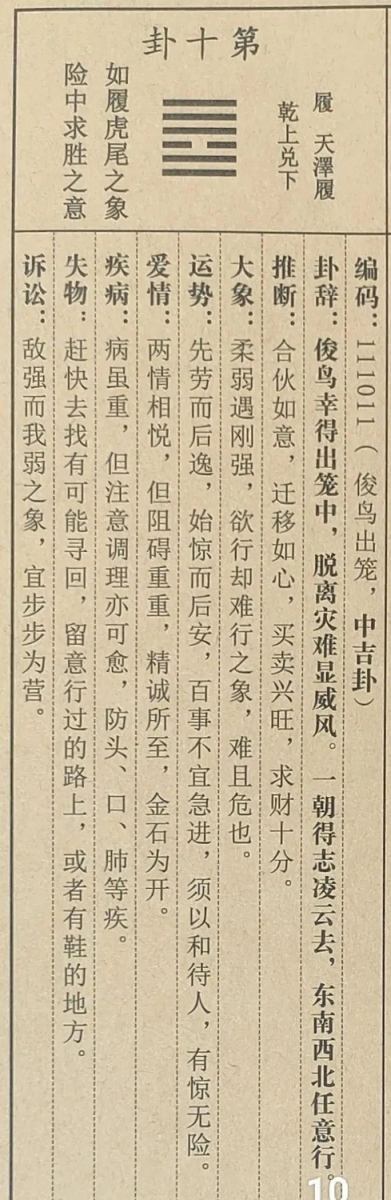 卦十第
履 天澤履
乾上兑下
如履虎尾之象
险中求胜之意
编码：111011（俊鸟出笼，中吉卦）
卦辞：俊鸟幸得出笼中，脱离灾难显威风。一朝得志凌云去，东南西北任意行。
推断：合伙如意，迁移如心，买卖兴旺，求财十分。
大象：柔弱遇刚强，欲行却难行之象，难且危也。
运势：先劳而后逸，始惊而后安，百事不宜急进，须以和待人，有惊无险。
爱情：两情相悦，但阻碍重重，精诚所至，金石为开。
疾病：病虽重，但注意调理亦可愈，防头、口、肺等疾。
失物：赶快去找有可能寻回，留意行过的路上，或者有鞋的地方。
诉讼：敌强而我弱之象，宜步步为营。
10